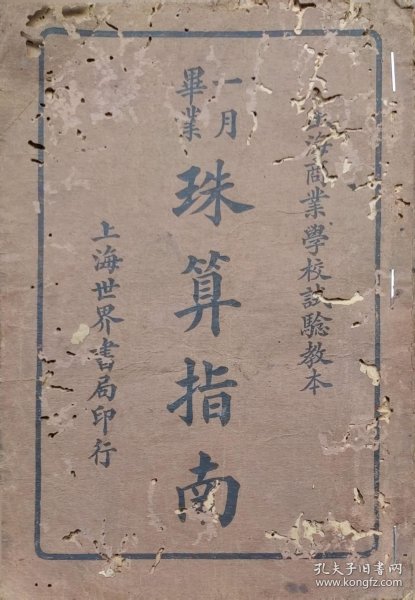 海商業學校試騐教本
一月
畢業
珠算指南
上海世界書局印行
孔夫子旧书网
www.kongfz.com